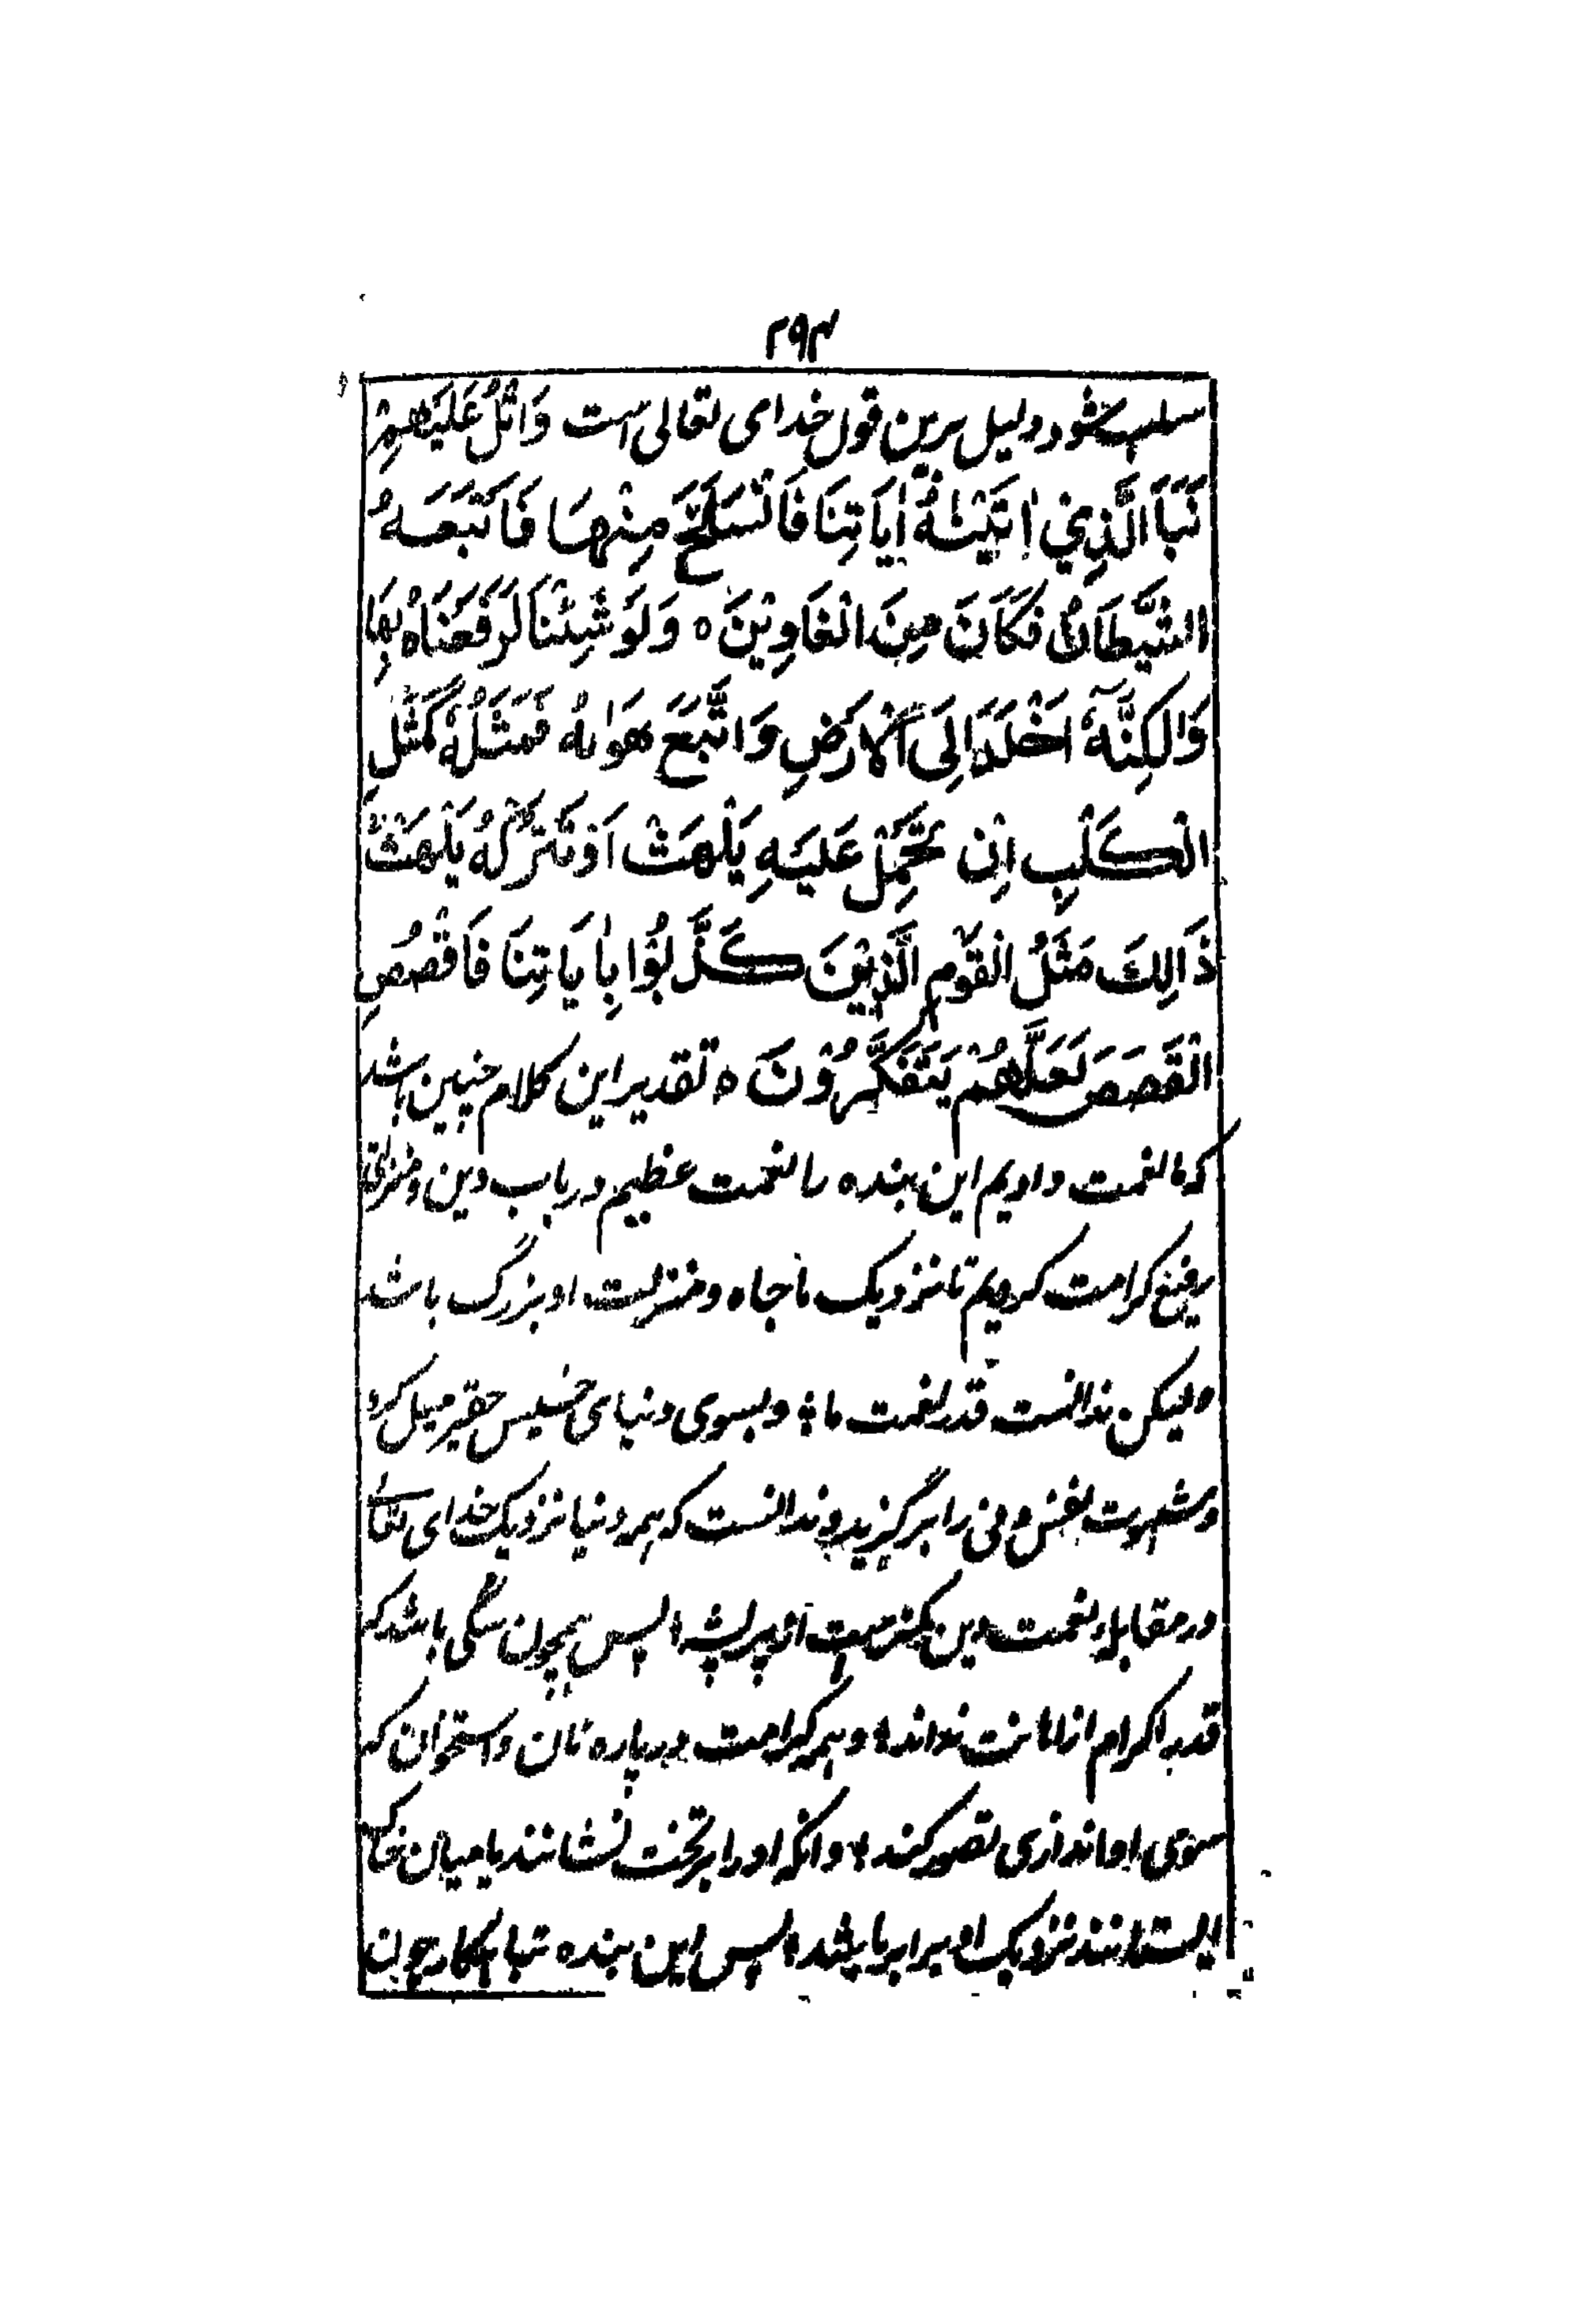 ۲۹۴
سلب شود و دلیل برین قول خدای تعالی است وَاتْلُ عَلَیْهِمْ
نَبَاَ الَّذِیْ اٰتَیْنٰهُ اٰیَاتِنَا فَانْسَلَخَ مِنْهَا فَاَتْبَعَهُ
الشَّیْطَانُ فَکَانَ مِنَ الْغَاوِیْنَ ه وَلَوْ شِئْنَا لَرَفَعْنَاهُ بِهَا
وَلٰکِنَّهٗ اَخْلَدَ اِلَی الْاَرْضِ وَاتَّبَعَ هَوٰىهُ فَمَثَلُهٗ کَمَثَلِ
الْکَلْبِ اِنْ تَحْمِلْ عَلَیْهِ یَلْهَثْ اَوْ تَتْرُکْهُ یَلْهَثْ
ذَالِکَ مَثَلُ الْقَوْمِ الَّذِیْنَ کَذَّبُوْا بِاٰیَاتِنَا فَاقْصُصِ
الْقَصَصَ لَعَلَّهُمْ یَتَفَکَّرُوْنَ ه تقدیر این کلام چنین باشد
که ما نعمت دادیم این بنده را نعمت عظیم در باب دین و منزلتی
رفیع کرامت کردیم تا نزدیک ما جاه و منزلت او بزرگ باشد
ولیکن ندانست قدر نعمت ما و بسوی دنیای خسیس حقیر میل کرد
و شهوت نفس دنی را برگزید و ندانست که همه دنیا نزدیک خدای تعالی
در مقابله نعمت دین کمتر ست از پر پشه پس همچون سگی باشد که
قدر اکرام از اهانت نداند و همه کرامت در پاره نان و استخوان که
سوی او اندازی تصور کند و آنکه او را بر تخت نشانند یا میان خاک
ایستانند نزدیک او برابر باشد پس این بنده تباهکار چون